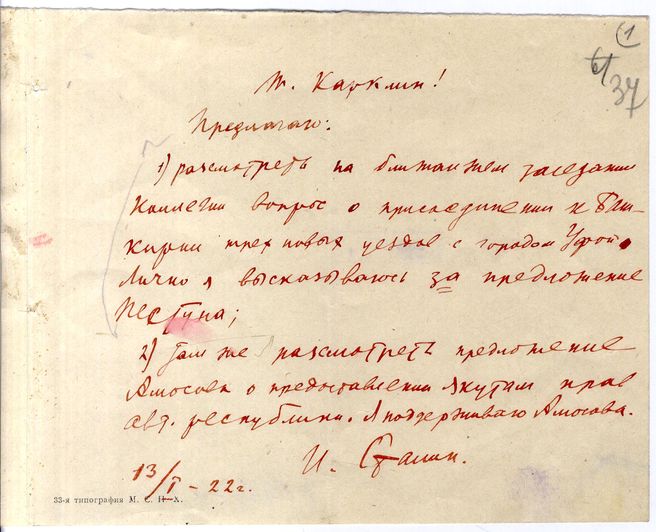 1
61
37
т. Карклин!
Предлагаю:
1) рассмотреть на ближайшем заседании
Коллегии вопрос о присоединении к Баш-
кирии трех новых уездов с городом Уфой.
Лично я высказываюсь за предложение
Пестуна;
2) Там же рассмотреть предложение
Амосова о предоставлении якутам прав
авт. республики. Я поддерживаю Амосова.
И. Сталин.
13/I – 22 г.
33-я типография М. С. Н. Х.